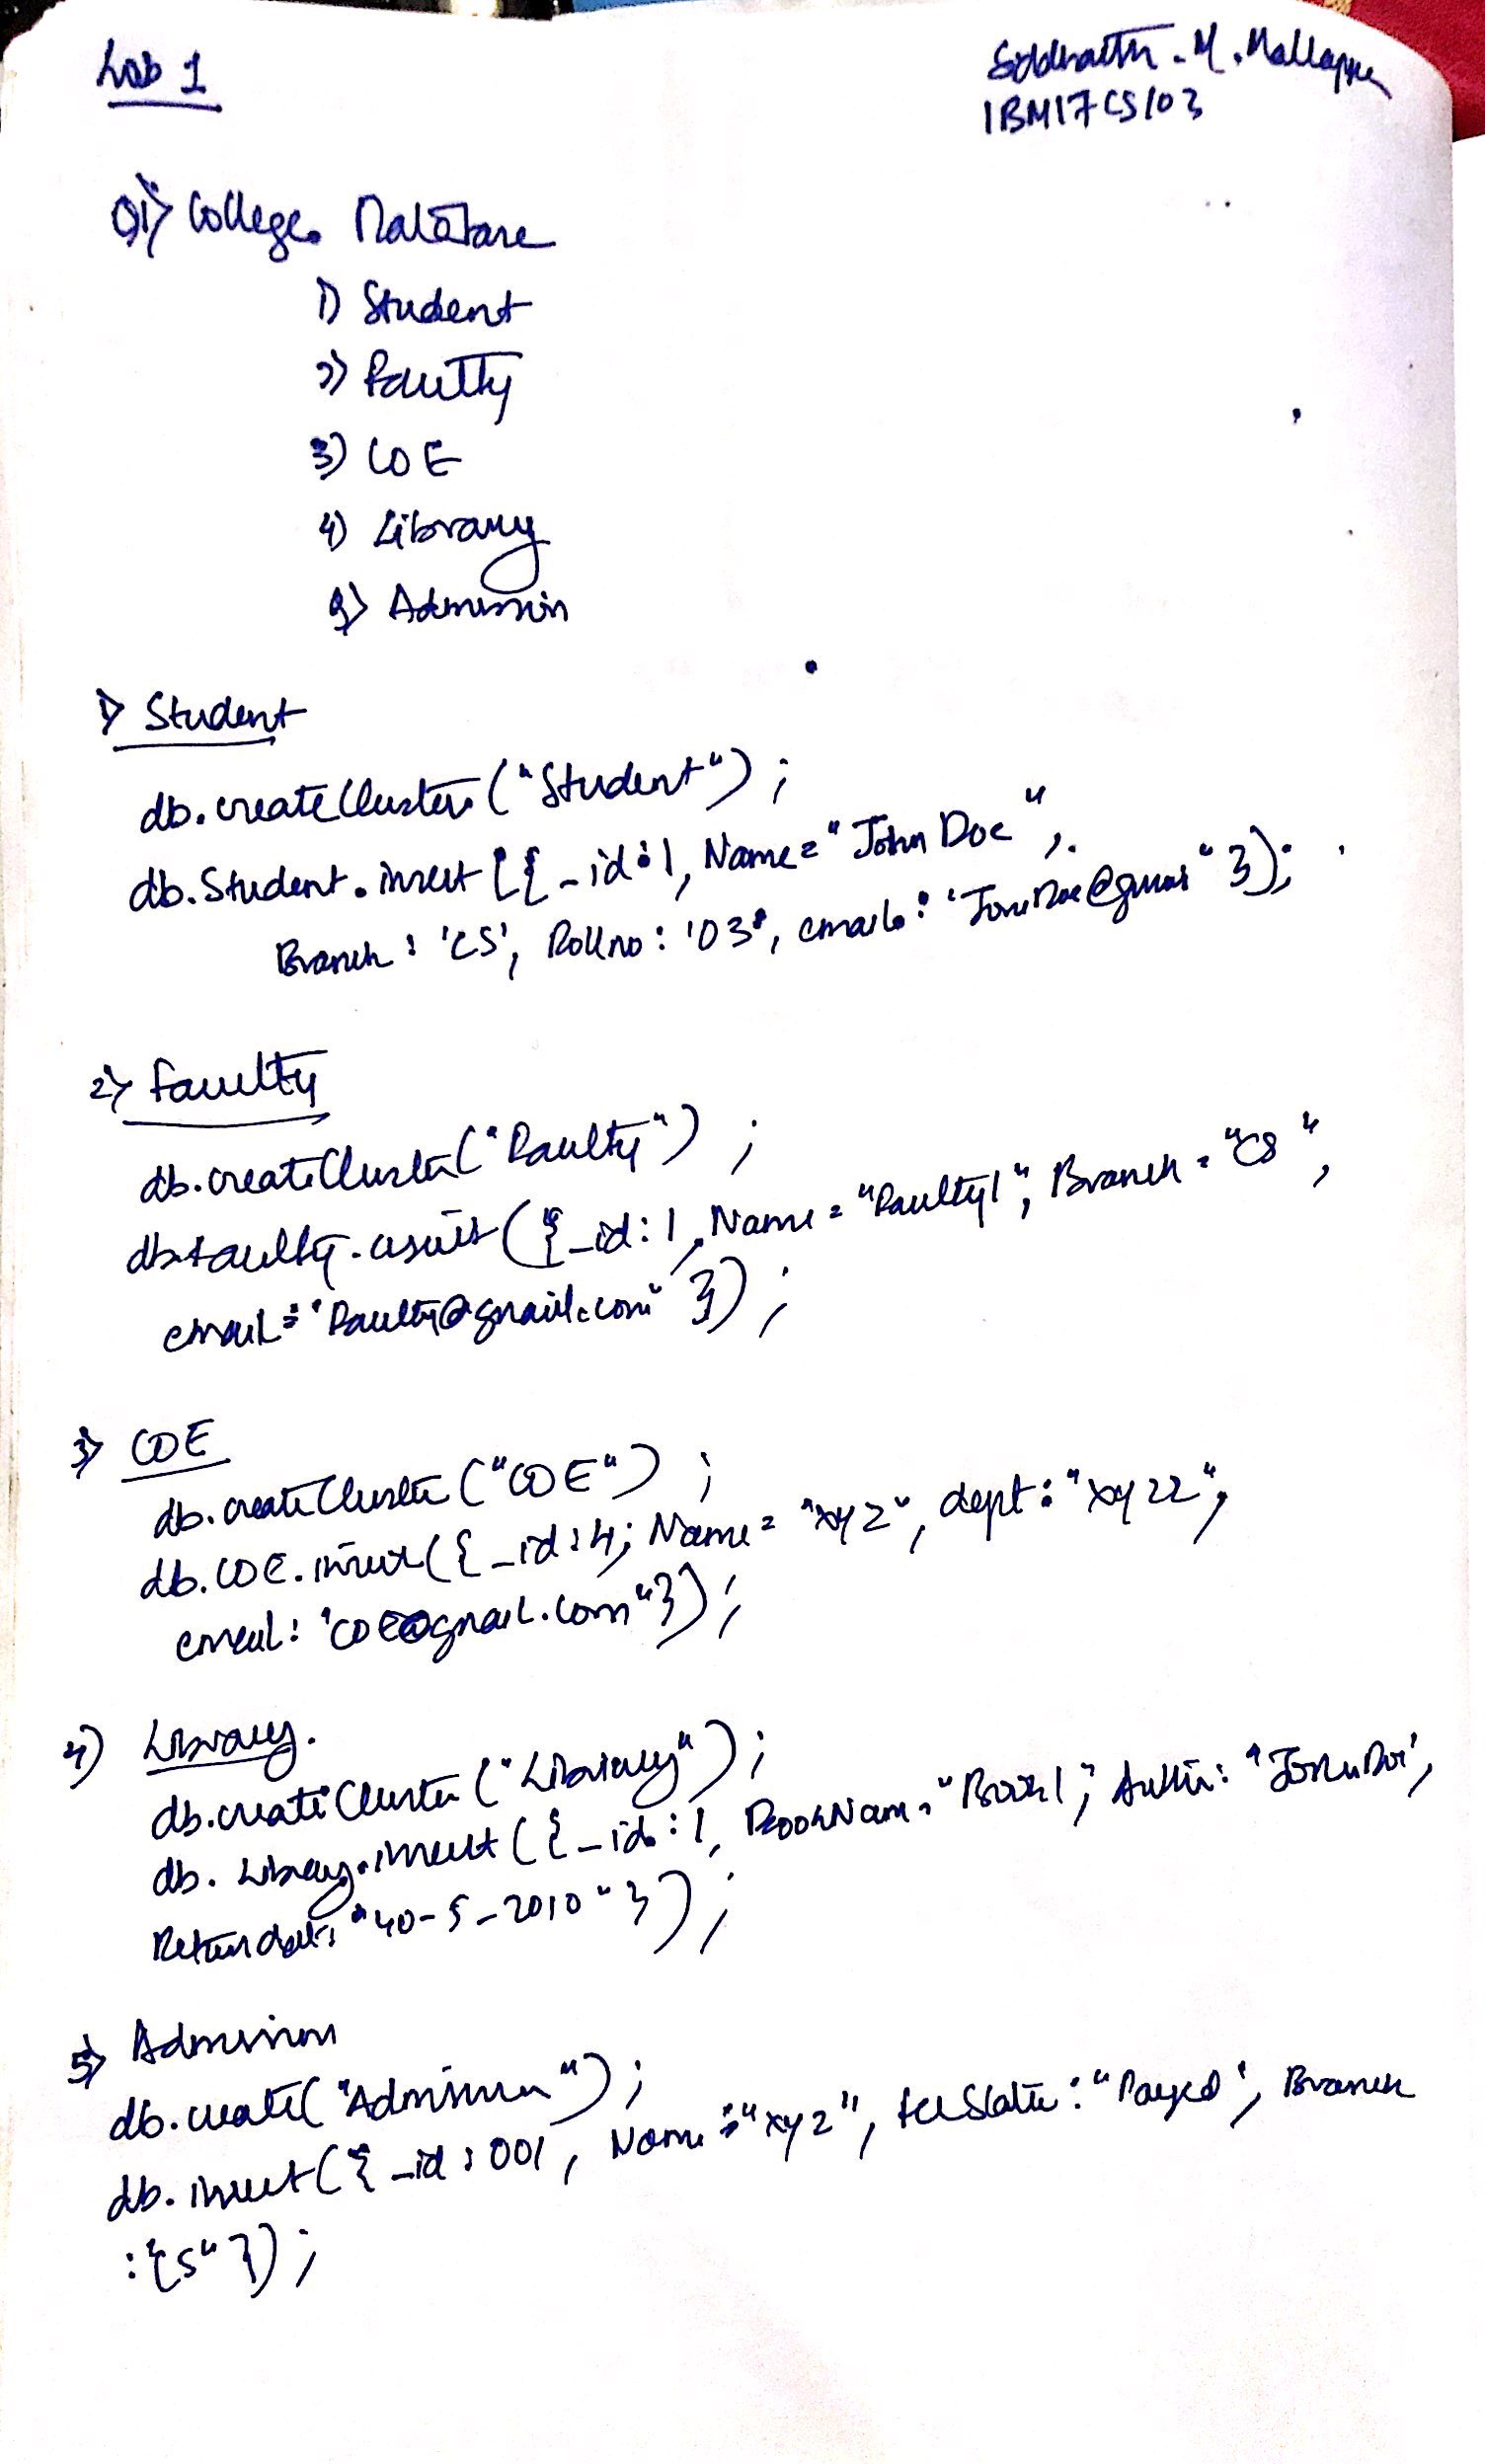 Lab 1
Siddharth. M. Mallappa
1BM17CS103
Q1) College Database
1) Student
2) Faculty
3) COE
4) Library
5) Admission
1) Student
db.createCluster("Student");
db.Student.insert({_id:1, Name="John Doe",
Branch: 'CS', Rollno: '03', email: 'JohnDoe@gmai"});
2) Faculty
db.createCluster("Faculty");
db.faculty.insert({_id:1, Name="Faculty1", Branch="CS",
email:"Faculty@gmail.com"});
3) COE
db.createCluster("COE");
db.COE.insert({_id:4; Name="xyz", dept:"xyzz",
email: "COE@gmail.com"});
4) Library.
db.createCluster("Library");
db.Library.insert({_id:1, BookName="Book1", Author: "John Doe",
Returndate: "40-5-2010"});
5) Admission
db.create("Admission");
db.insert({_id:001, Name:"xyz", feeState: "Payed", Branch
:"CS"});